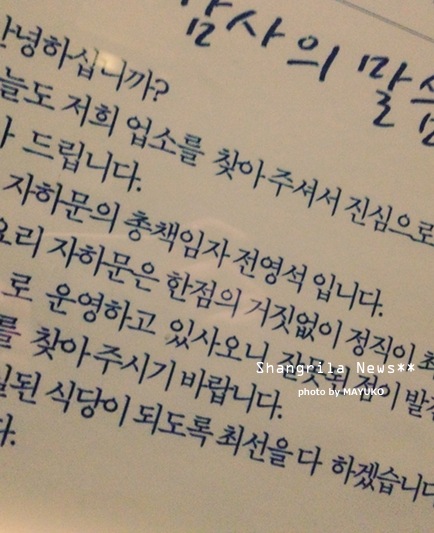 감사의 말씀
안녕하십니까?
늘도 저희 업소를 찾아 주셔서 진심으로
드립니다.
자하문의 총책임자 전영석 입니다.
요리 자하문은 한점의 거짓없이 정직이 최
로 운영하고 있사오니 잘못된 점이 발견
를 찾아 주시기 바랍니다.
된 식당이 되도록 최선을 다 하겠습니다
다.
Shangrila News**
photo by MAYUKO